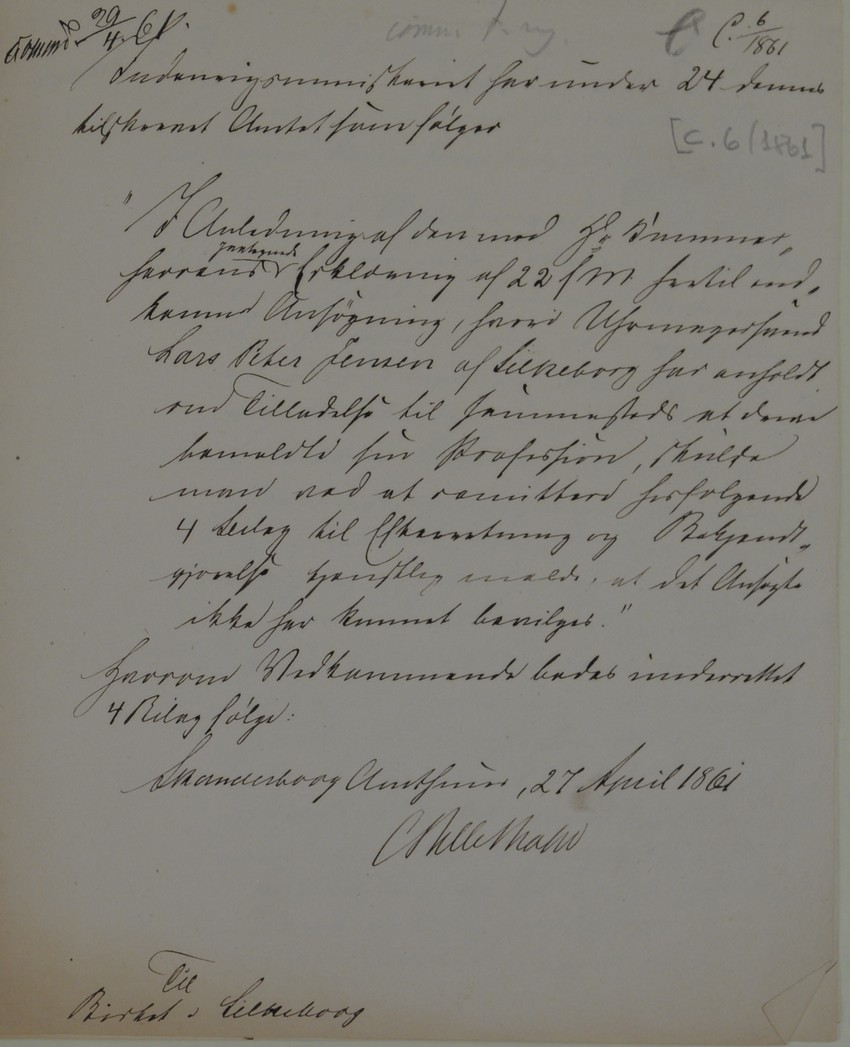 29/4 61.
C. 6/1861
Indenrigsministeriet har under 24 dennes
tilskrevet Amtet som følger
[C. 6/1861]
"I Anledning af den med Hr Kammer-
herrens Erklæring af 22 f M. hertil ind-
komne Ansøgning, hvori Uhrmagersvend
Lars Peter Jensen af Silkeborg har anholdt
om Tilladelse til sammesteds at drive
bemeldte sin Profession, skulde
man ved at remittere hosfølgende
4 Bilag til Efterretning og Bekjendt-
gjørelse tjenstlig melde, at det Ansøgte
ikke har kunnet bevilges."
Hvorom Vedkommende bedes underrettet
4 Bilag følge:
Skanderborg Amthuus, 27 April 1861
Til
Birket i Silkeborg